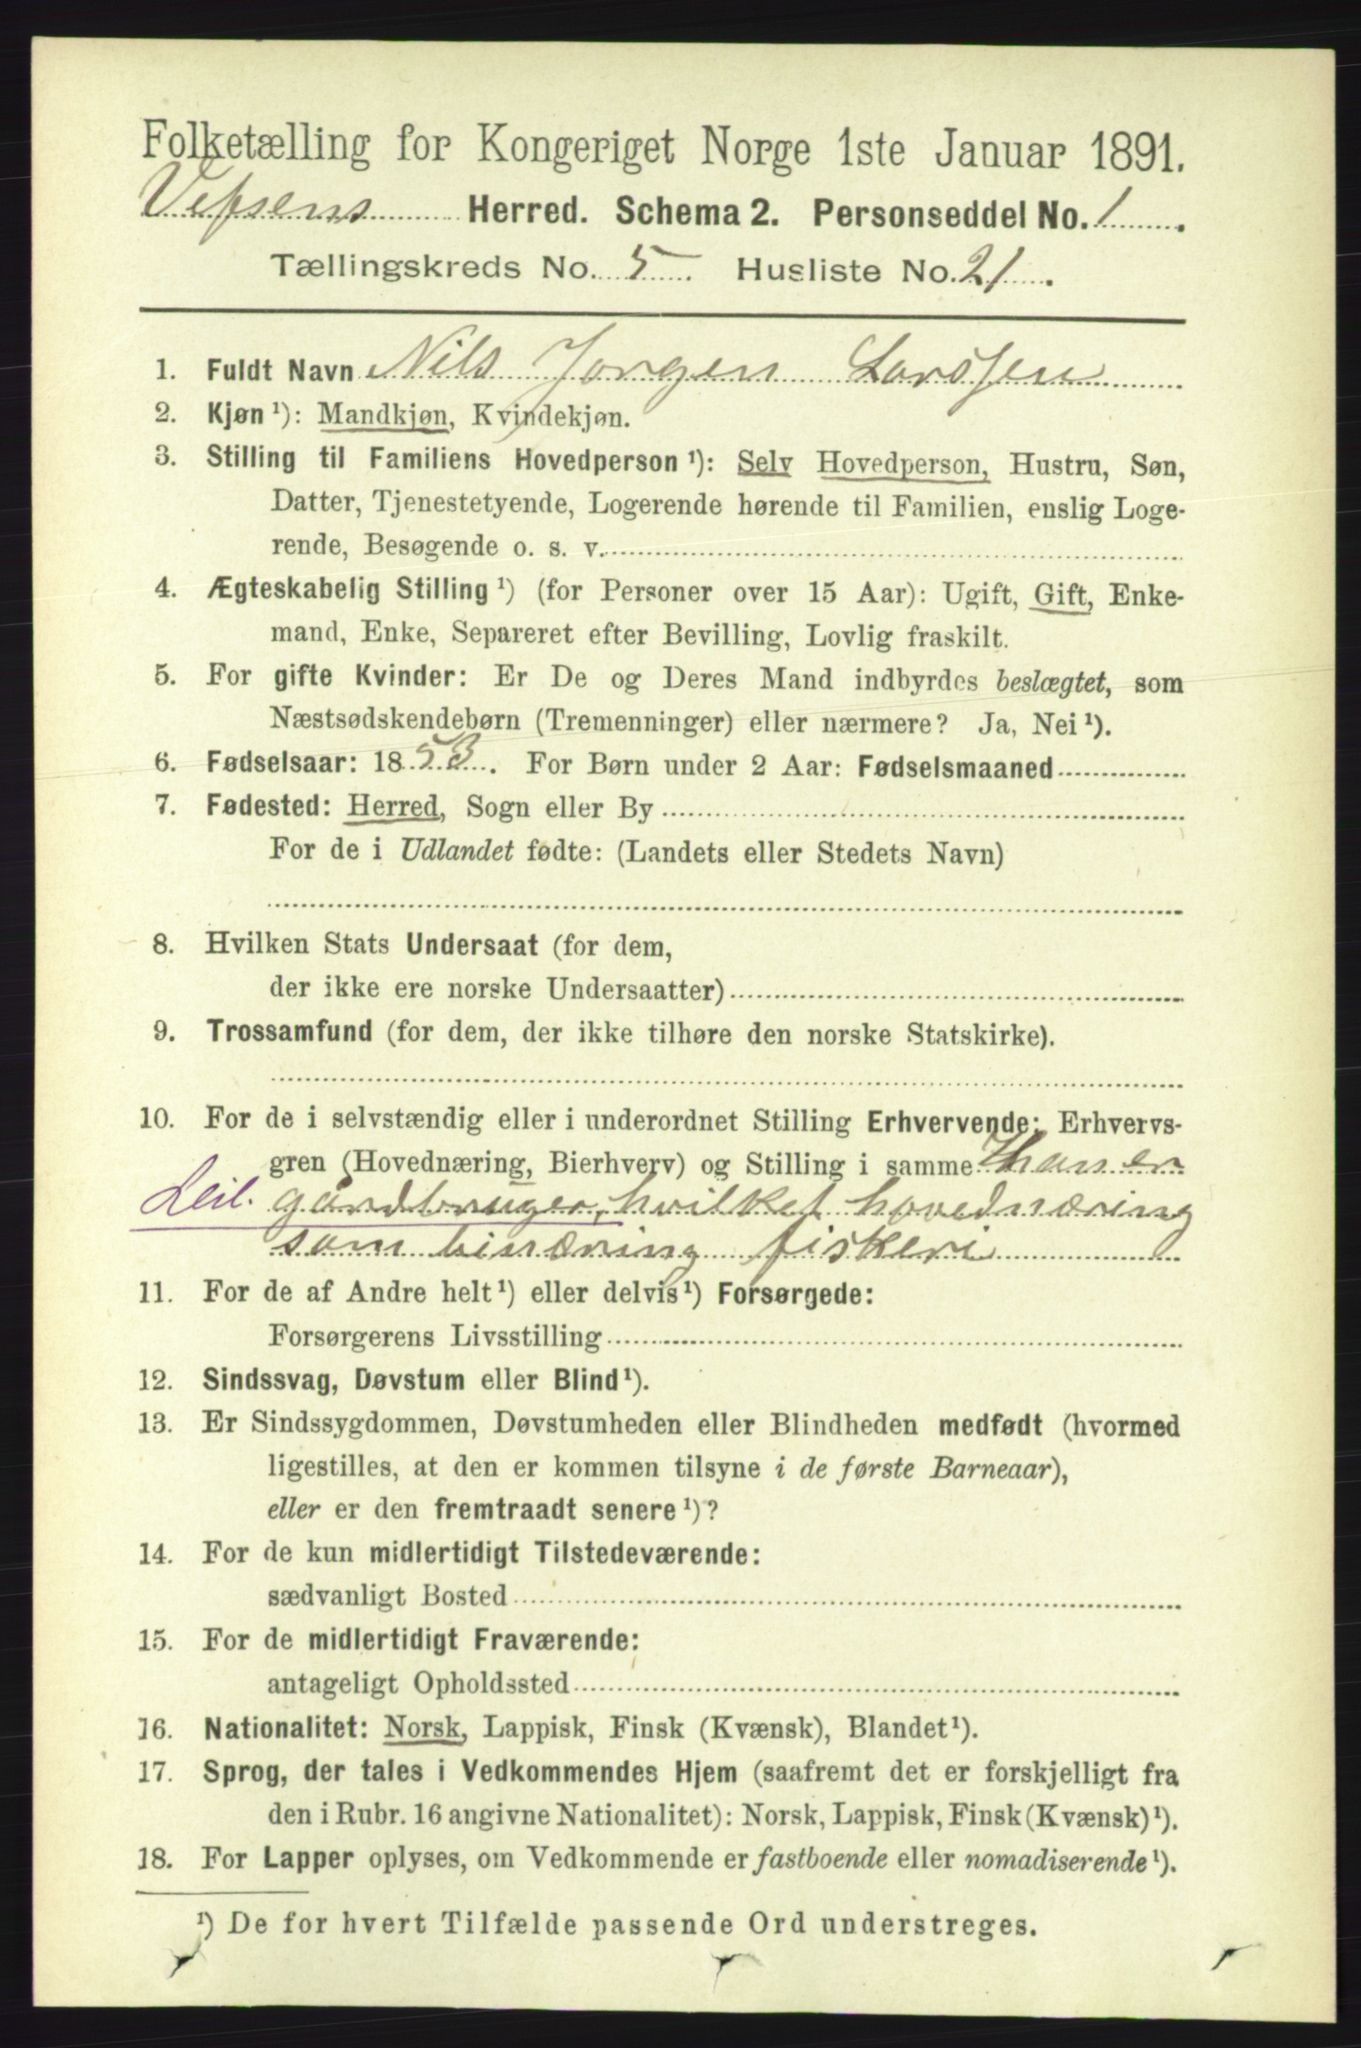 Folketælling for Kongeriget Norge 1ste Januar 1891.
Vefsens Herred. Schema 2. Personseddel No. 1.
Tællingskreds No. 5. Husliste No. 21.
1. Fuldt Navn Nils Jorgen Larssen
2. Kjøn ¹): Mandkjøn, Kvindekjøn.
3. Stilling til Familiens Hovedperson ¹): Selv Hovedperson, Hustru, Søn,
Datter, Tjenestetyende, Logerende hørende til Familien, enslig Loge-
rende, Besøgende o. s. v.
4. Ægteskabelig Stilling ¹) (for Personer over 15 Aar): Ugift, Gift, Enke-
mand, Enke, Separeret efter Bevilling, Lovlig fraskilt.
5. For gifte Kvinder: Er De og Deres Mand indbyrdes beslægtet, som
Næstsødskendebørn (Tremenninger) eller nærmere? Ja, Nei ¹).
6. Fødselsaar: 1853. For Børn under 2 Aar: Fødselsmaaned
7. Fødested: Herred, Sogn eller By
For de i Udlandet fødte: (Landets eller Stedets Navn)
8. Hvilken Stats Undersaat (for dem,
der ikke ere norske Undersaatter)
9. Trossamfund (for dem, der ikke tilhøre den norske Statskirke).
10. For de i selvstændig eller i underordnet Stilling Erhvervende: Erhvervs-
gren (Hovednæring, Bierhverv) og Stilling i samme Han er
Leil. gårdbruger, hvilket hovednæring
som binæring fiskeri
11. For de af Andre helt ¹) eller delvis ¹) Forsørgede:
Forsørgerens Livsstilling
12. Sindssvag, Døvstum eller Blind ¹).
13. Er Sindssygdommen, Døvstumheden eller Blindheden medfødt (hvormed
ligestilles, at den er kommen tilsyne i de første Barneaar),
eller er den fremtraadt senere ¹)?
14. For de kun midlertidigt Tilstedeværende:
sædvanligt Bosted
15. For de midlertidigt Fraværende:
antageligt Opholdssted
16. Nationalitet: Norsk, Lappisk, Finsk (Kvænsk), Blandet ¹).
17. Sprog, der tales i Vedkommendes Hjem (saafremt det er forskjelligt fra
den i Rubr. 16 angivne Nationalitet): Norsk, Lappisk, Finsk (Kvænsk) ¹).
18. For Lapper oplyses, om Vedkommende er fastboende eller nomadiserende ¹).
¹) De for hvert Tilfælde passende Ord understreges.